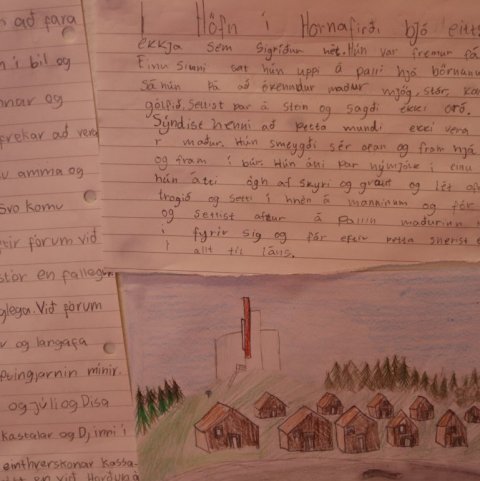 að fara
í bil og
nar og
frekar að vera
amma og
Svo komu
forum við
stor en falleg
glega. Við forum
og langafa
tvingjarnin minir.
og júli og Disa
kastalar og Dj inni í
einthverskonar kassa-
Höfn í Hornafirði bjó
ekkja sem Sigríður hét. Hún var fremur fá
Einu sinni sat hún uppi á palli hjá börnunu
Sá hún þá að ókenndur maður mjög stór, ka
gólfið. Settist þar á stein og sagði ekki orð.
Sýndist henni að þetta mundi ekki vera
maður. Hún smeygði sér ofan og fram hjá
og fram í búr. Hún átti þar nýmjólk í einu
hún átti og af skyri og graut og lét
trogið og setti í hnén á manninum og fór
og settist aftur á pallin maðurinn
í fyrir sig og fór eftir þetta snerist
allt til láns.